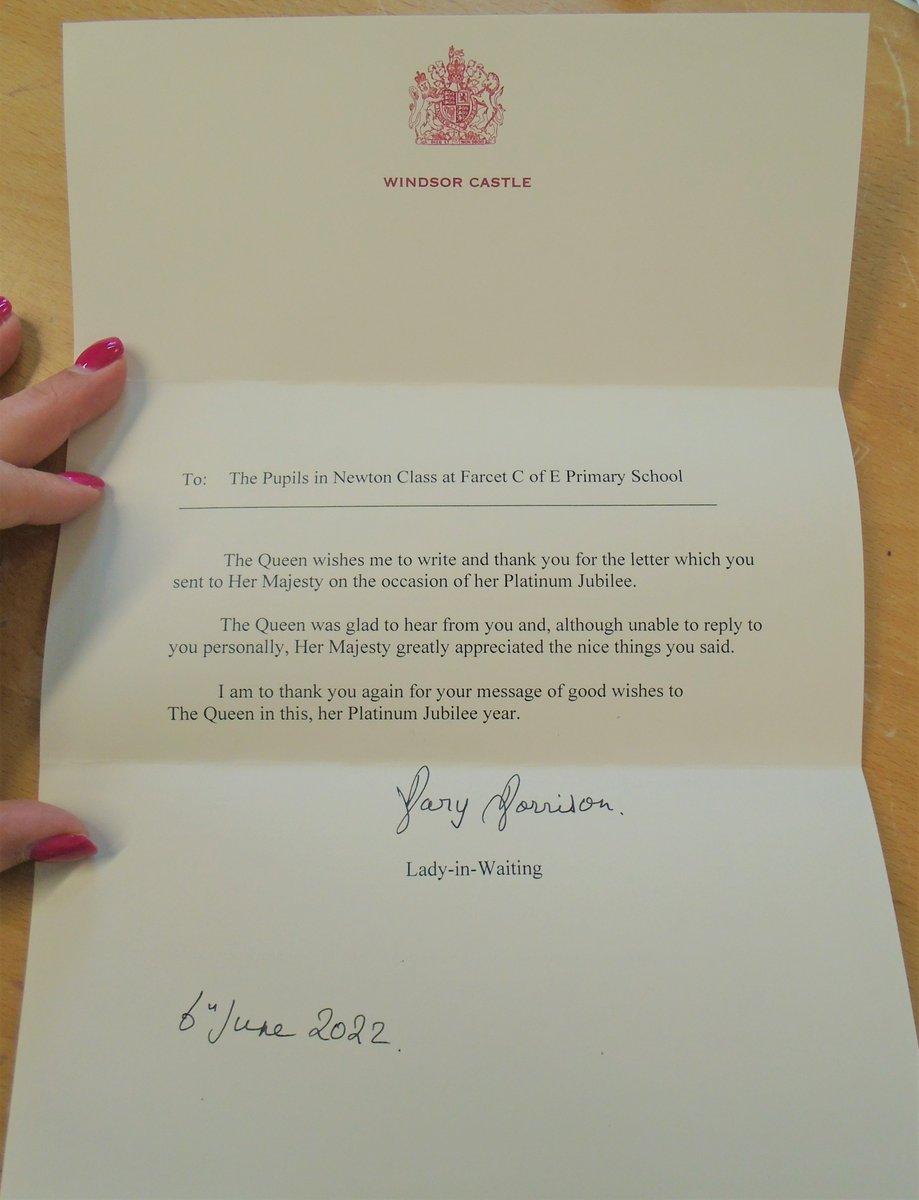 WINDSOR CASTLE
To: The Pupils in Newton Class at Farcet C of E Primary School
The Queen wishes me to write and thank you for the letter which you
sent to Her Majesty on the occasion of her Platinum Jubilee.
The Queen was glad to hear from you and, although unable to reply to
you personally, Her Majesty greatly appreciated the nice things you said.
I am to thank you again for your message of good wishes to
The Queen in this, her Platinum Jubilee year.
Mary Morrison.
Lady-in-Waiting
6th June 2022.